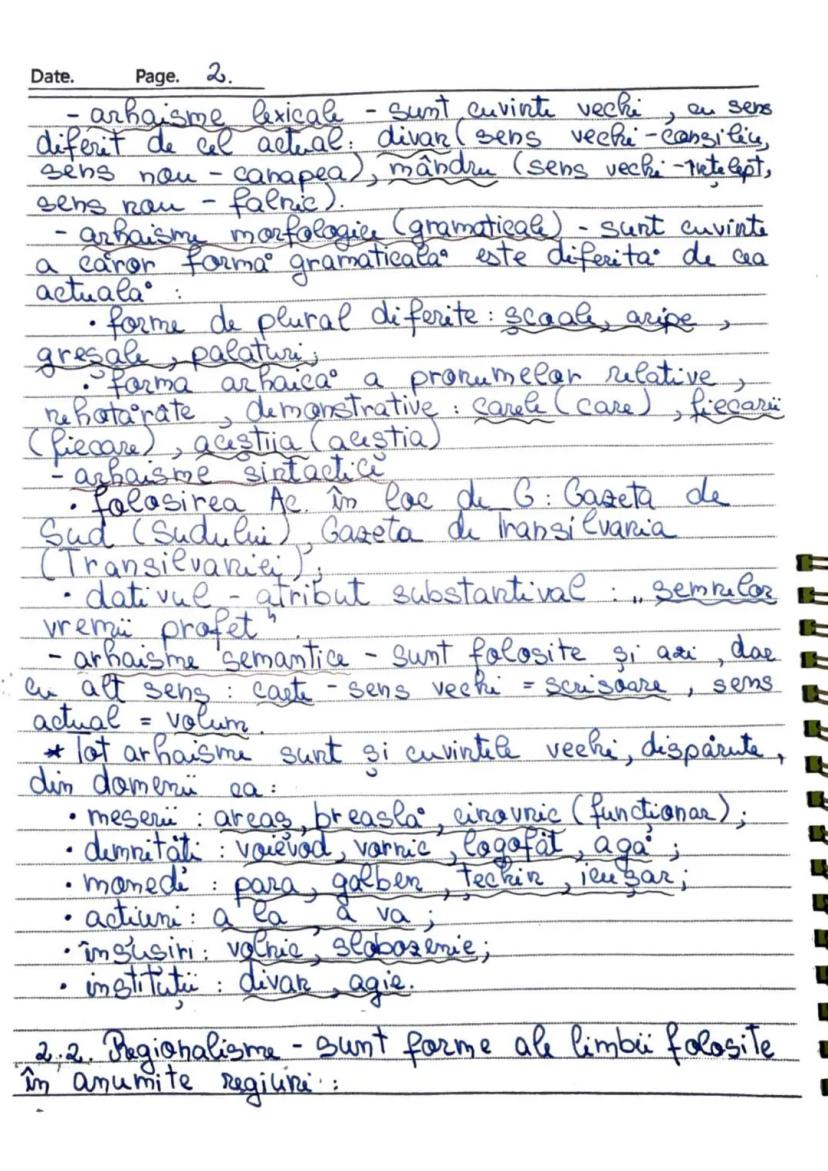 Date. Page. 2.
- arhaisme lexicale - sunt cuvinte vechi, cu sens
diferit de cel actual: divan (sens vechi - consiliu,
sens nou - canapea), mândru (sens vechi - înțelept,
sens nou - falnic).
- arhaisme morfologice (gramaticale) - sunt cuvinte
a căror formă gramaticală este diferită de cea
actuală:
• forme de plural diferite: școale, aripe,
greșale, palaturi;
• forma arhaică a pronumelor relative,
nehotărâte, demonstrative: carele (care), fiecarii
(fiecare), aceștiia (aceștia)
- arhaisme sintactice
• folosirea Ac. în loc de G: Gazeta de
Sud (Sudului), Gazeta de Transilvania
(Transilvaniei);
• dativul - atribut substantival: „semnelor
vremii profet".
- arhaisme semantice - sunt folosite și azi, dar
cu alt sens: carte - sens vechi = scrisoare, sens
actual = volum.
* Tot arhaisme sunt și cuvintele vechi, dispărute,
din domenii ca:
• meserii: arcaș, breaslă, cinovnic (funcționar);
• demnități: voievod, vornic, logofăt, agă;
• monedi: para, galben, techin, ieușar;
• acțiuni: a la, a va;
• însușiri: volnic, slobozenie;
• instituții: divan, agie.
2.2. Regionalisme - sunt forme ale limbii folosite
în anumite regiuni: